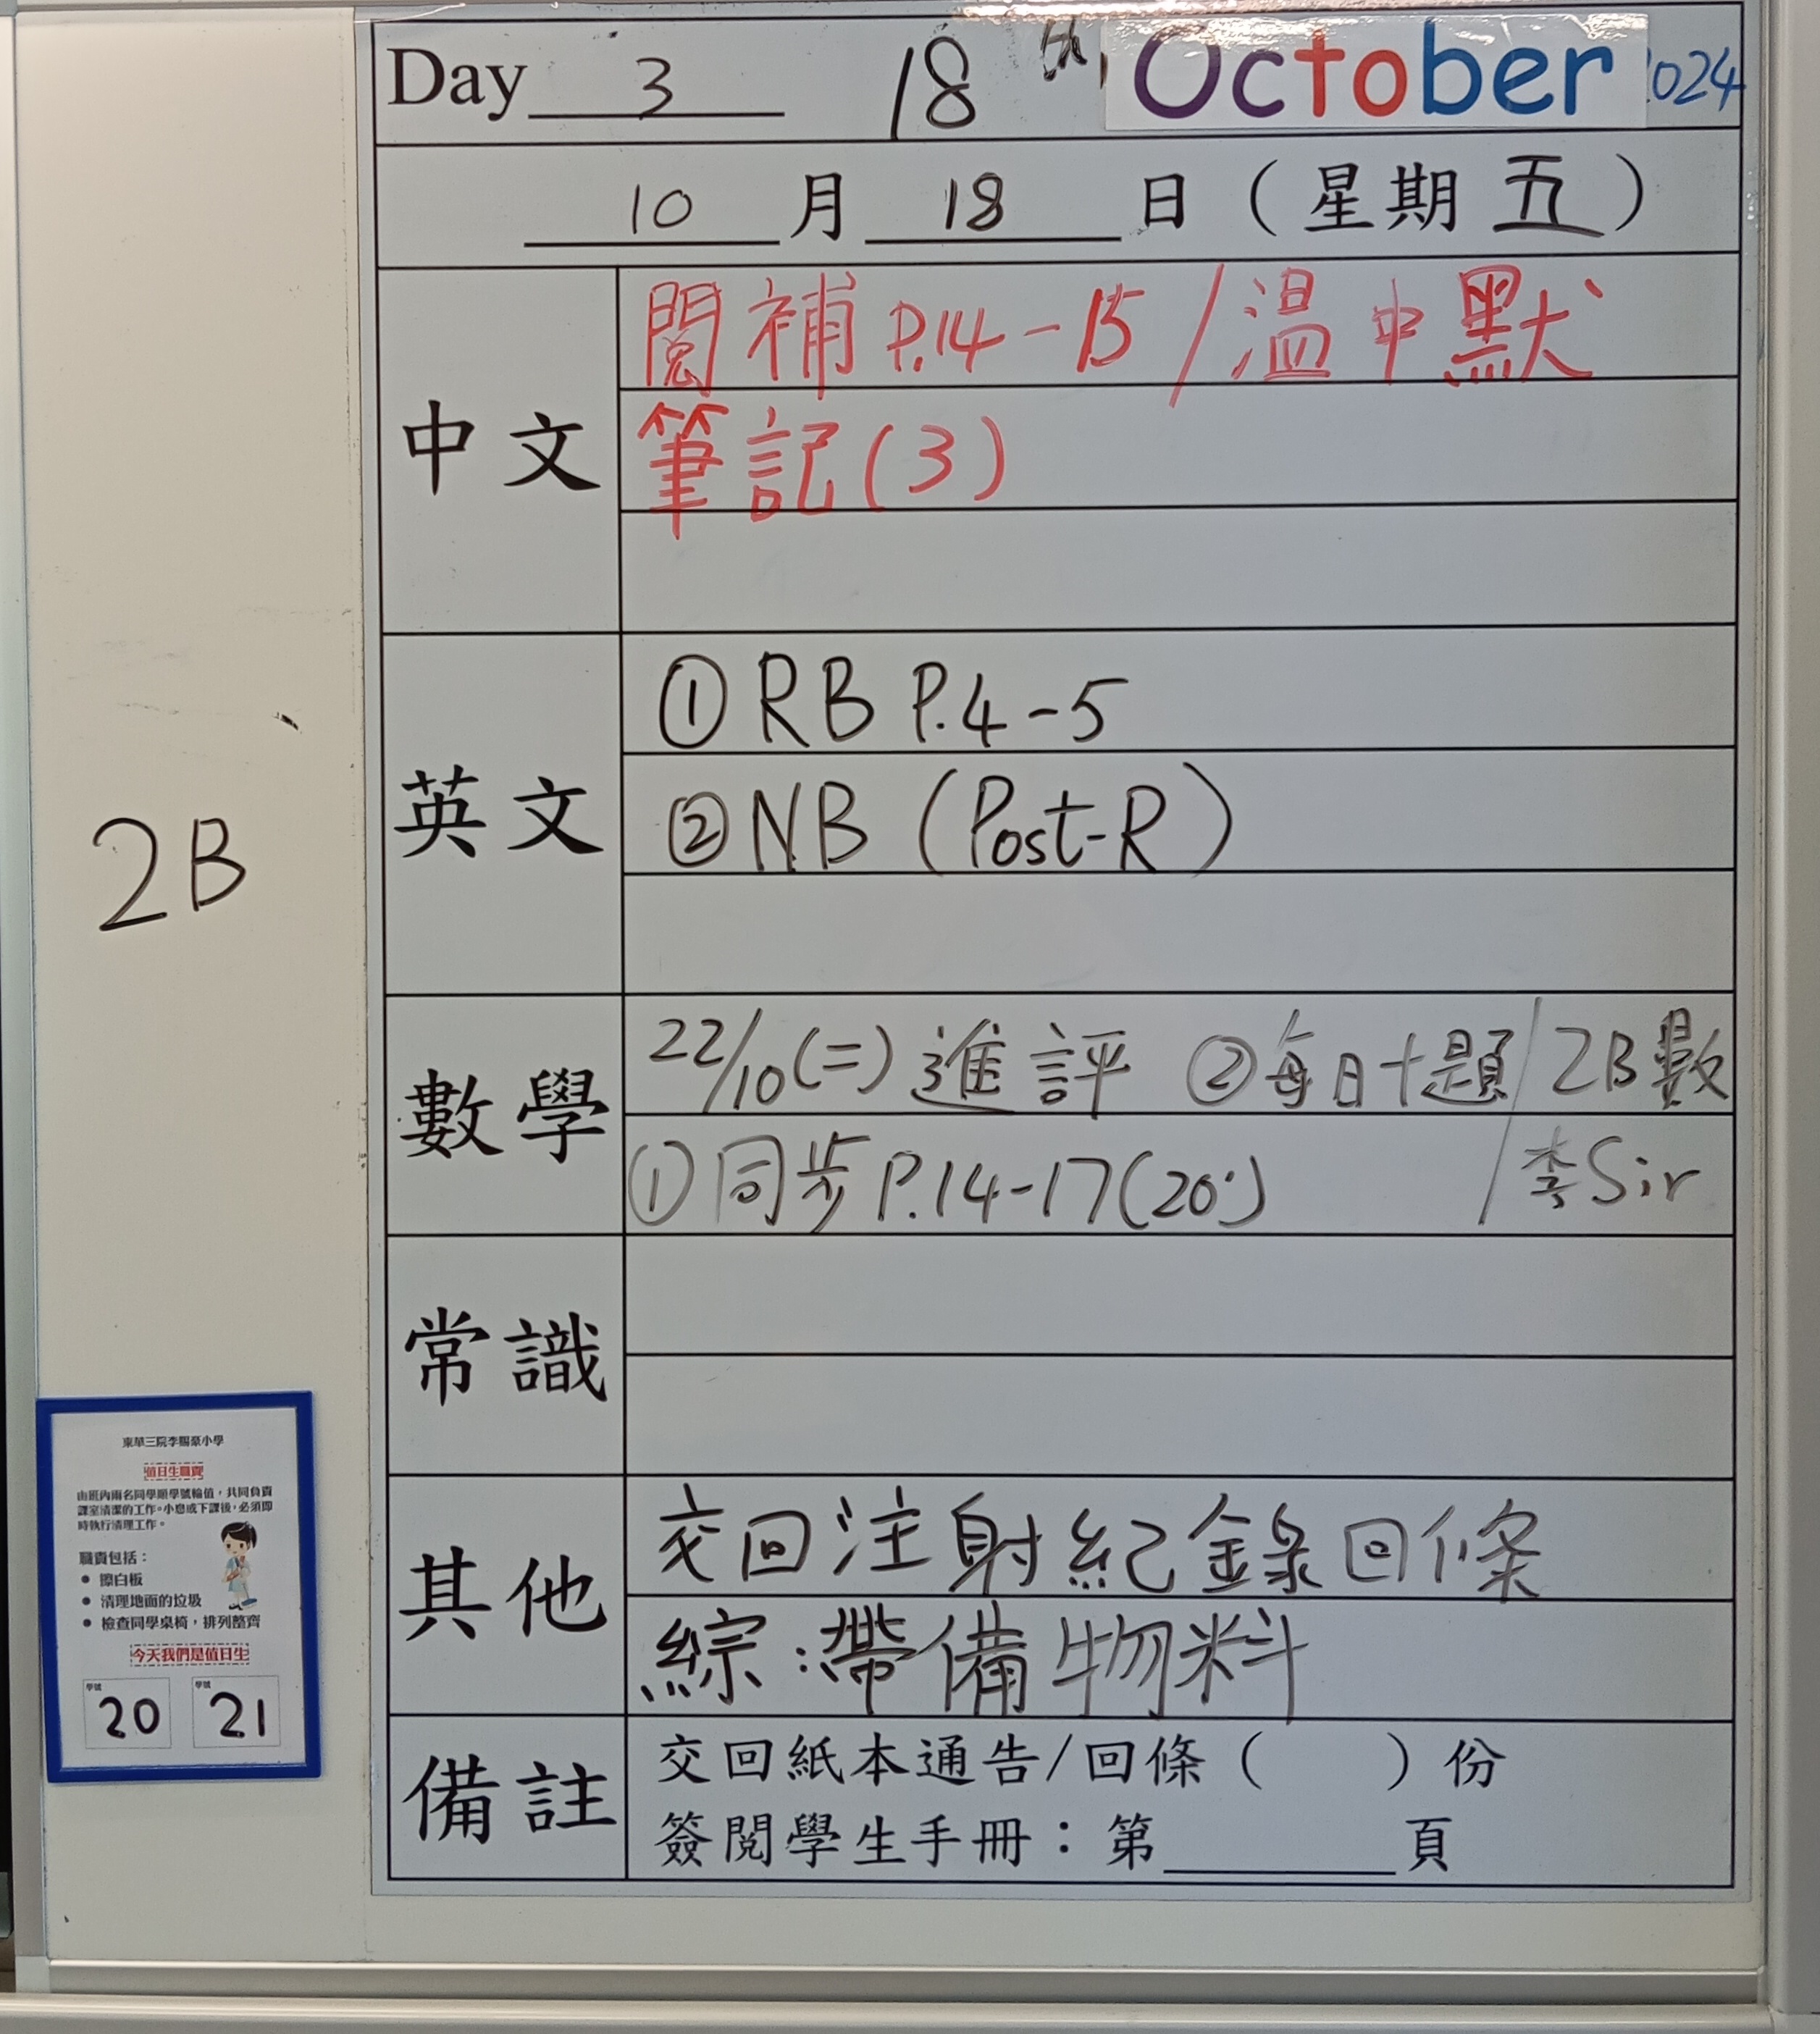 Day 3 18th, October 2024
10 月 18 日 ( 星期 五 )
中文
閱補 P.14-15 / 溫中默
筆記(3)
英文
① RB P.4-5
② NB (Post-R)
數學
22/10(二) 進評 ②每日十題 / 2B數
①同步 P.14-17(20') / 李Sir
常識
其他
交回注射紀錄回條
綜:帶備物料
備註
交回紙本通告/回條 ( ) 份
簽閱學生手冊:第 頁
2B
東華三院李賜豪小學
值日生職責
由班內兩名同學順學號輪值,共同負責
課室清潔的工作。小息或下課後,必須即
時執行清理工作。
職責包括:
● 擦白板
● 清理地面的垃圾
● 檢查同學桌椅,排列整齊
今天我們是值日生
學號 學號
20 21